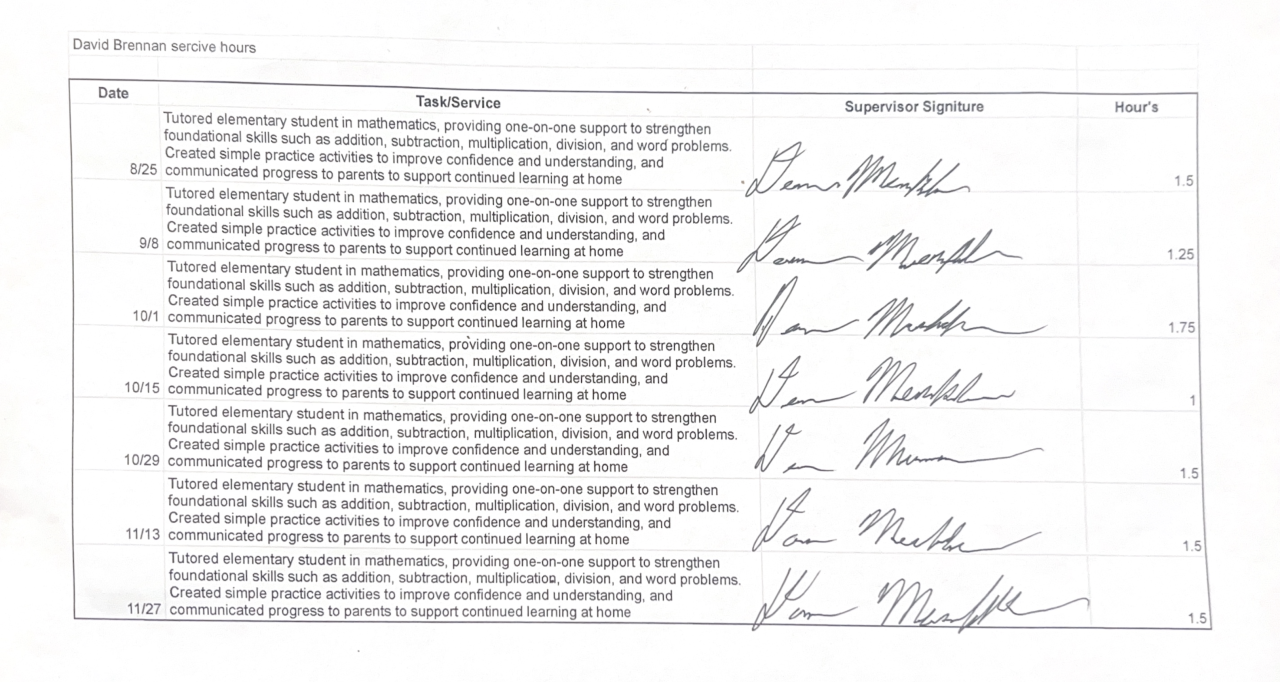 David Brennan sercive hours
Date Task/Service Supervisor Signiture Hour's
Tutored elementary student in mathematics, providing one-on-one support to strengthen
foundational skills such as addition, subtraction, multiplication, division, and word problems.
Created simple practice activities to improve confidence and understanding, and
8/25 communicated progress to parents to support continued learning at home 1.5
Tutored elementary student in mathematics, providing one-on-one support to strengthen
foundational skills such as addition, subtraction, multiplication, division, and word problems.
Created simple practice activities to improve confidence and understanding, and
9/8 communicated progress to parents to support continued learning at home 1.25
Tutored elementary student in mathematics, providing one-on-one support to strengthen
foundational skills such as addition, subtraction, multiplication, division, and word problems.
Created simple practice activities to improve confidence and understanding, and
10/1 communicated progress to parents to support continued learning at home 1.75
Tutored elementary student in mathematics, providing one-on-one support to strengthen
foundational skills such as addition, subtraction, multiplication, division, and word problems.
Created simple practice activities to improve confidence and understanding, and
10/15 communicated progress to parents to support continued learning at home 1
Tutored elementary student in mathematics, providing one-on-one support to strengthen
foundational skills such as addition, subtraction, multiplication, division, and word problems.
Created simple practice activities to improve confidence and understanding, and
10/29 communicated progress to parents to support continued learning at home 1.5
Tutored elementary student in mathematics, providing one-on-one support to strengthen
foundational skills such as addition, subtraction, multiplication, division, and word problems.
Created simple practice activities to improve confidence and understanding, and
11/13 communicated progress to parents to support continued learning at home 1.5
Tutored elementary student in mathematics, providing one-on-one support to strengthen
foundational skills such as addition, subtraction, multiplication, division, and word problems.
Created simple practice activities to improve confidence and understanding, and
11/27 communicated progress to parents to support continued learning at home 1.5